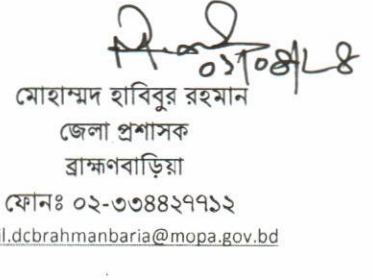 ০১/০৪/২৪
মোহাম্মদ হাবিবুর রহমান
জেলা প্রশাসক
ব্রাহ্মণবাড়িয়া
ফোনঃ ০২-৩৩৪৪২৭৭১২
il.dcbrahmanbaria@mopa.gov.bd